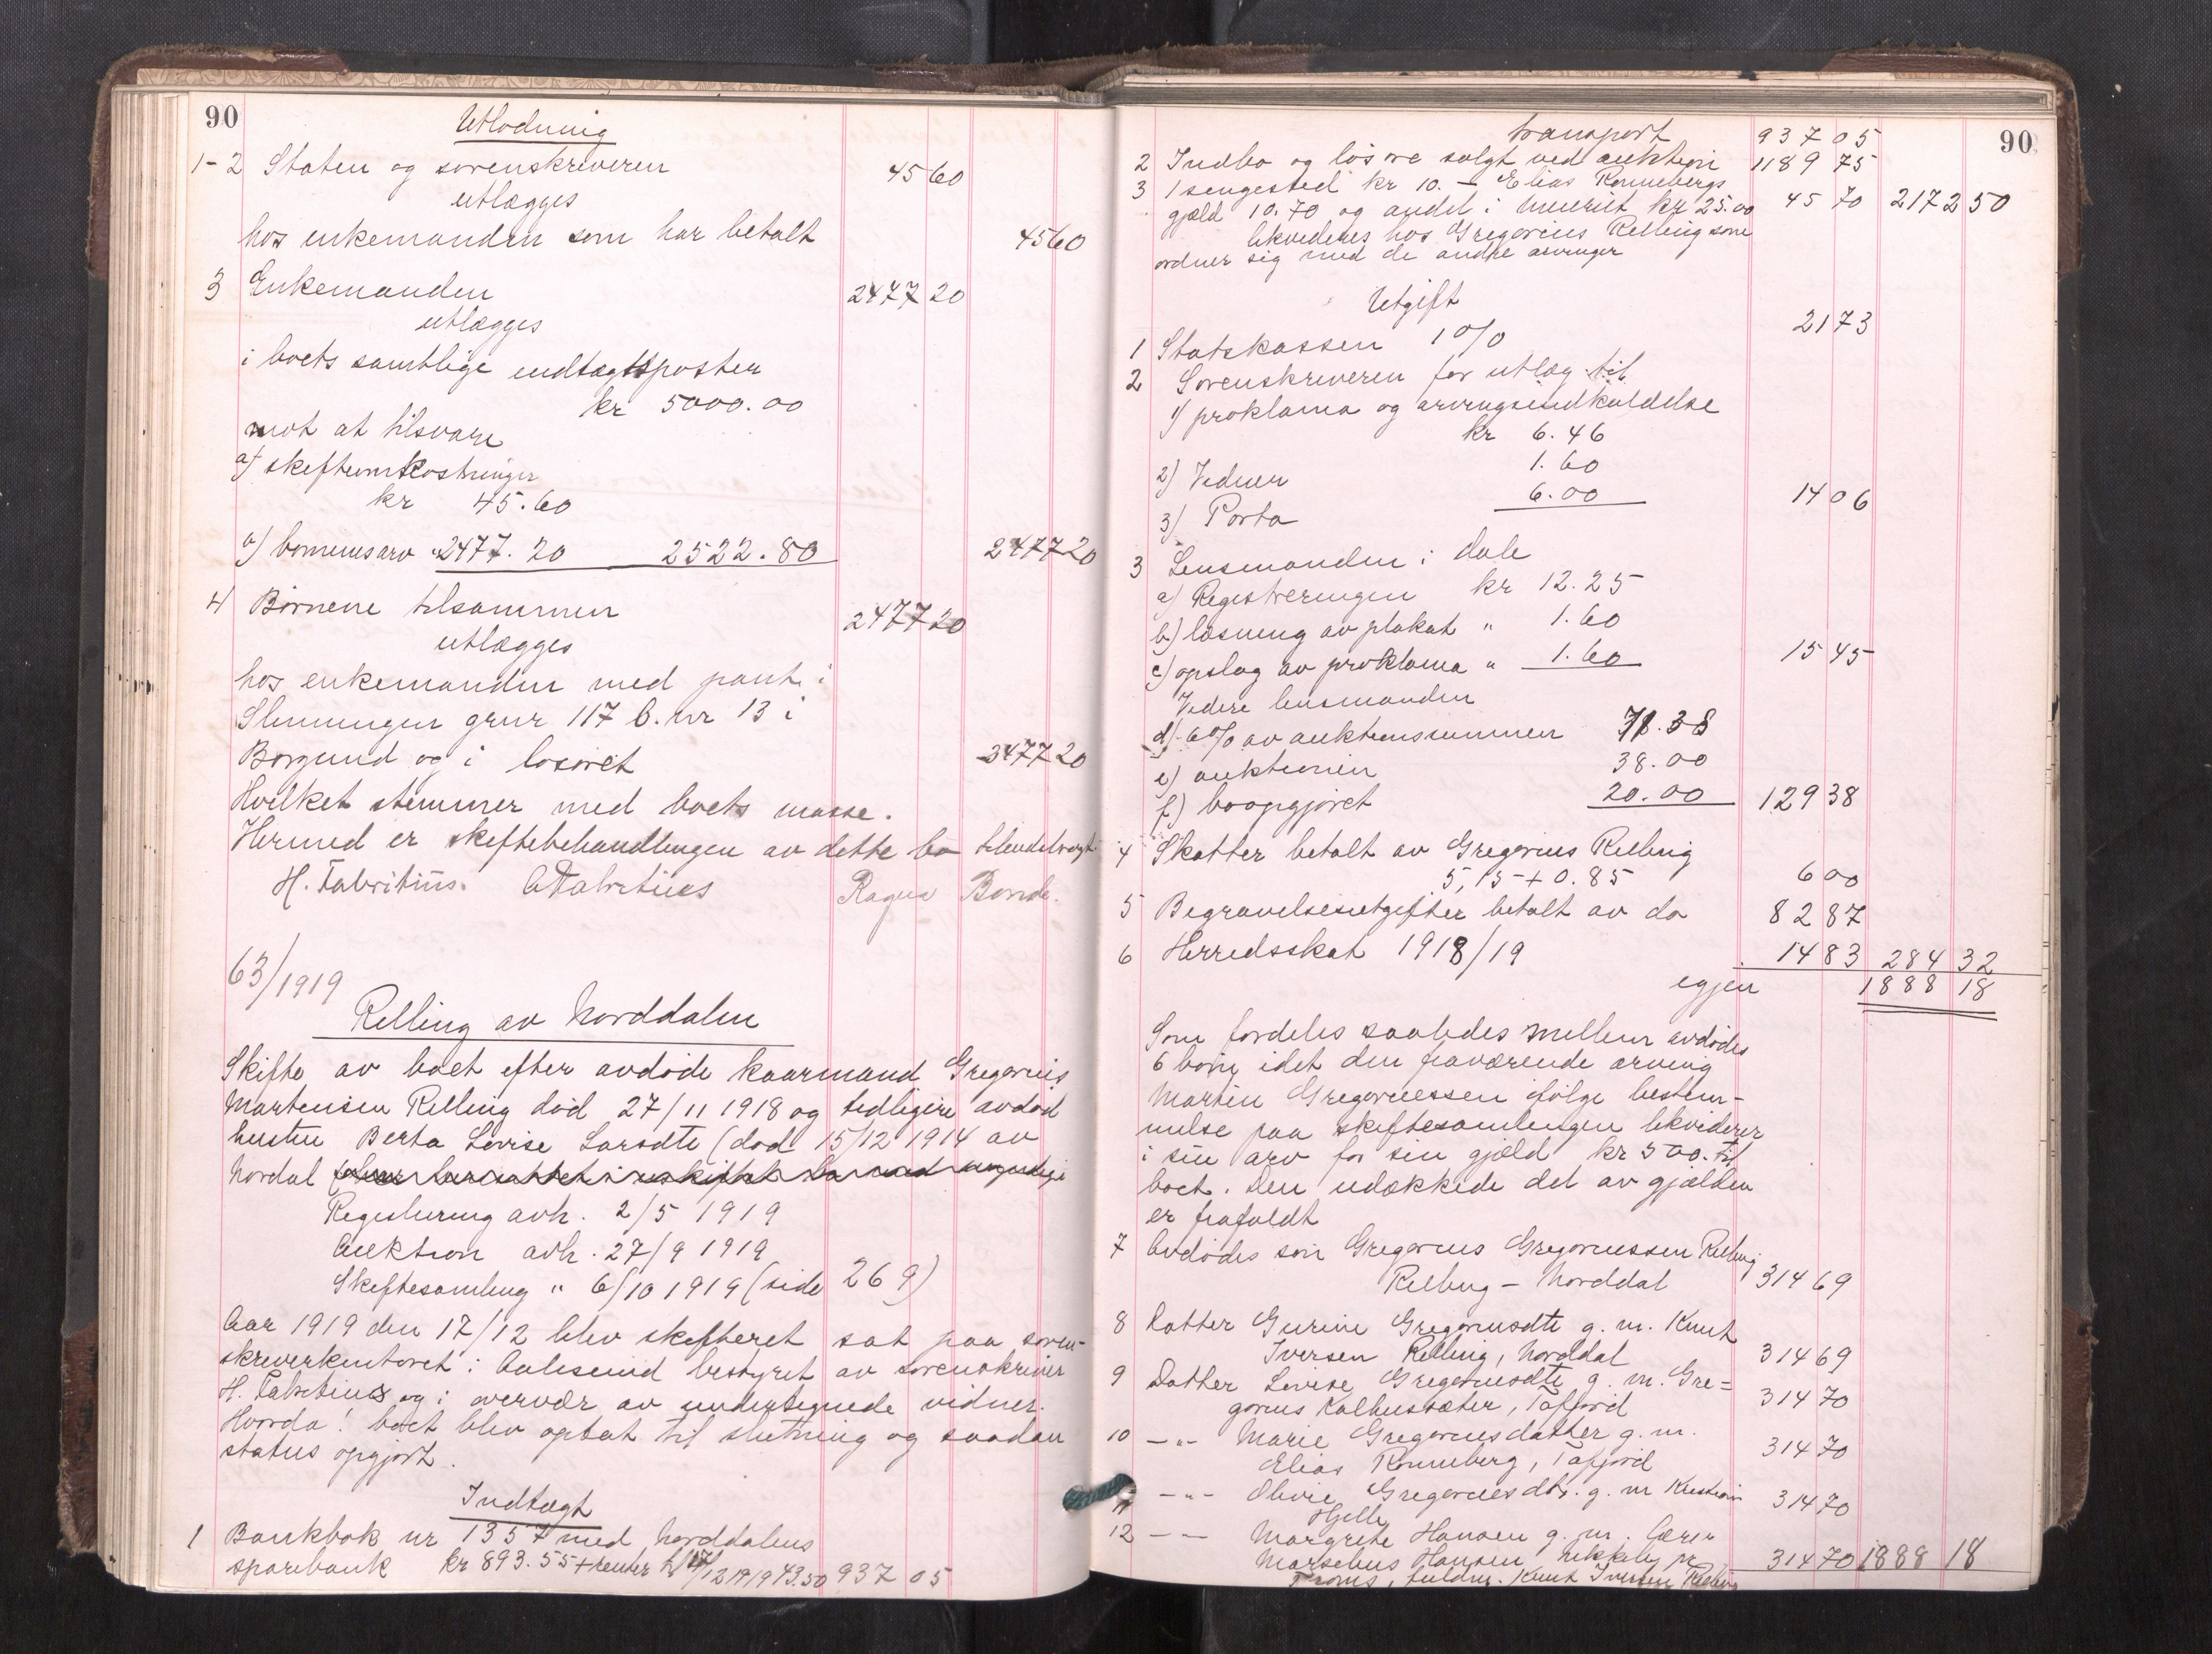 90
Utlodning
1-2 Staten og sorenskriveren 45 60
utlægges
hos enkemanden som har betalt 45 60
3 Enkemanden 2477 20
utlægges
i boets samtlige indtægtsposter
kr 5000.00
mot at tilsvare
a) skifteomkostninger
kr 45.60
b) børnenes arv 2477.20 2522.80 2477 20
4 Børnene tilsammen 2477 20
utlægges
hos enkemanden med pant i
Slinningen gnr 117 b.nr 13 i
Borgund og i løsøret 2477 20
Hvilket stemmer med boets masse.
Hermed er skiftebehandlingen av dette bo tilendebragt
H. Fabritius. A Fabritius Ragna Bonde.
63/1919
Relling av Norddalen
Skifte av boet efter avdøde kaarmand Gregorius
Martensen Relling død 27/11 1918 og tidligere avdød
hustru Berta Lovise Larsdtr (død 15/12 1914 av
Nordal
Registrering avh. 2/5 1919
Auktion avh. 27/9 1919
Skiftesamling " 6/10 1919 (side 269)
Aar 1919 den 17/12 blev skifteret sat paa soren-
skriverkontoret i Aalesund bestyret av sorenskriver
H. Fabritius og i overvær av undertegnede vidner.
Hvorda! boet blev optat til slutning og saadan
status opgjort.
Indtægt
1 Bankbok nr 1357 med Norddalens
sparebank kr 893.55 + renter til 17/12 1919 43.50 937 05
90
transport 937 05
2 Indbo og løsøre solgt ved auktion 1189 75
3 1 sengested kr 10. - Elias Rønnebergs
gjæld 10.70 og andel i meieriet kr 25.00 45 70 2172 50
likvideres hos Gregorius Relling som
ordner sig med de andre arvinger
Utgift
1 Statskassen 1 0/0 21 73
2 Sorenskriveren for utlæg til
1) proklama og arvingsindkaldelse
kr 6.46
2) Vidner 1.60
3) Porto 6.00 14 06
3 Lensmanden i dale
a) Registreringen kr 12.25
b) læsning av plakat " 1.60
c) opslag av proklama " 1.60 15 45
Videre lensmanden
d) 6 0/0 av auktionssummen 71.38
e) auktionen 38.00
f) boopgjøret 20.00 129 38
4 Skatter betalt av Gregorius Relling
5,15 + 0.85 6 00
5 Begravelsesutgifter betalt av do 82 87
6 Herredsskat 1918/19 14 83 284 32
igjen 1888 18
Som fordeles saaledes mellem avdødes
6 børn idet den fraværende arving
Martin Gregoriussen ifølge bestem-
melse paa skiftesamlingen likviderer
i sin arv for sin gjæld kr 500. til
boet. Den udækkede del av gjælden
er frafaldt
7 Avdødes søn Gregorius Gregoriussen Relling
Relling - Norddal 314 69
8 Datter Gurine Gregoriusdtr g. m. Knut
Iversen Relling, Norddal 314 69
9 Datter Lovise Gregoriusdtr g. m. Gre=
gorius Kalhussæter, Tafjord 314 70
10 -"- Marie Gregoriusdatter g. m.
Elias Rønneberg, Tafjord 314 70
11 -"- Olivie Gregoriusdtr. g. m Kristian
Hjelle 314 70
12 -"- Margrete Hansen g. m. Lærer
Marselius Hansen, pr
Troms, fuldm. Knut Iversen Relling 314 70 1888 18